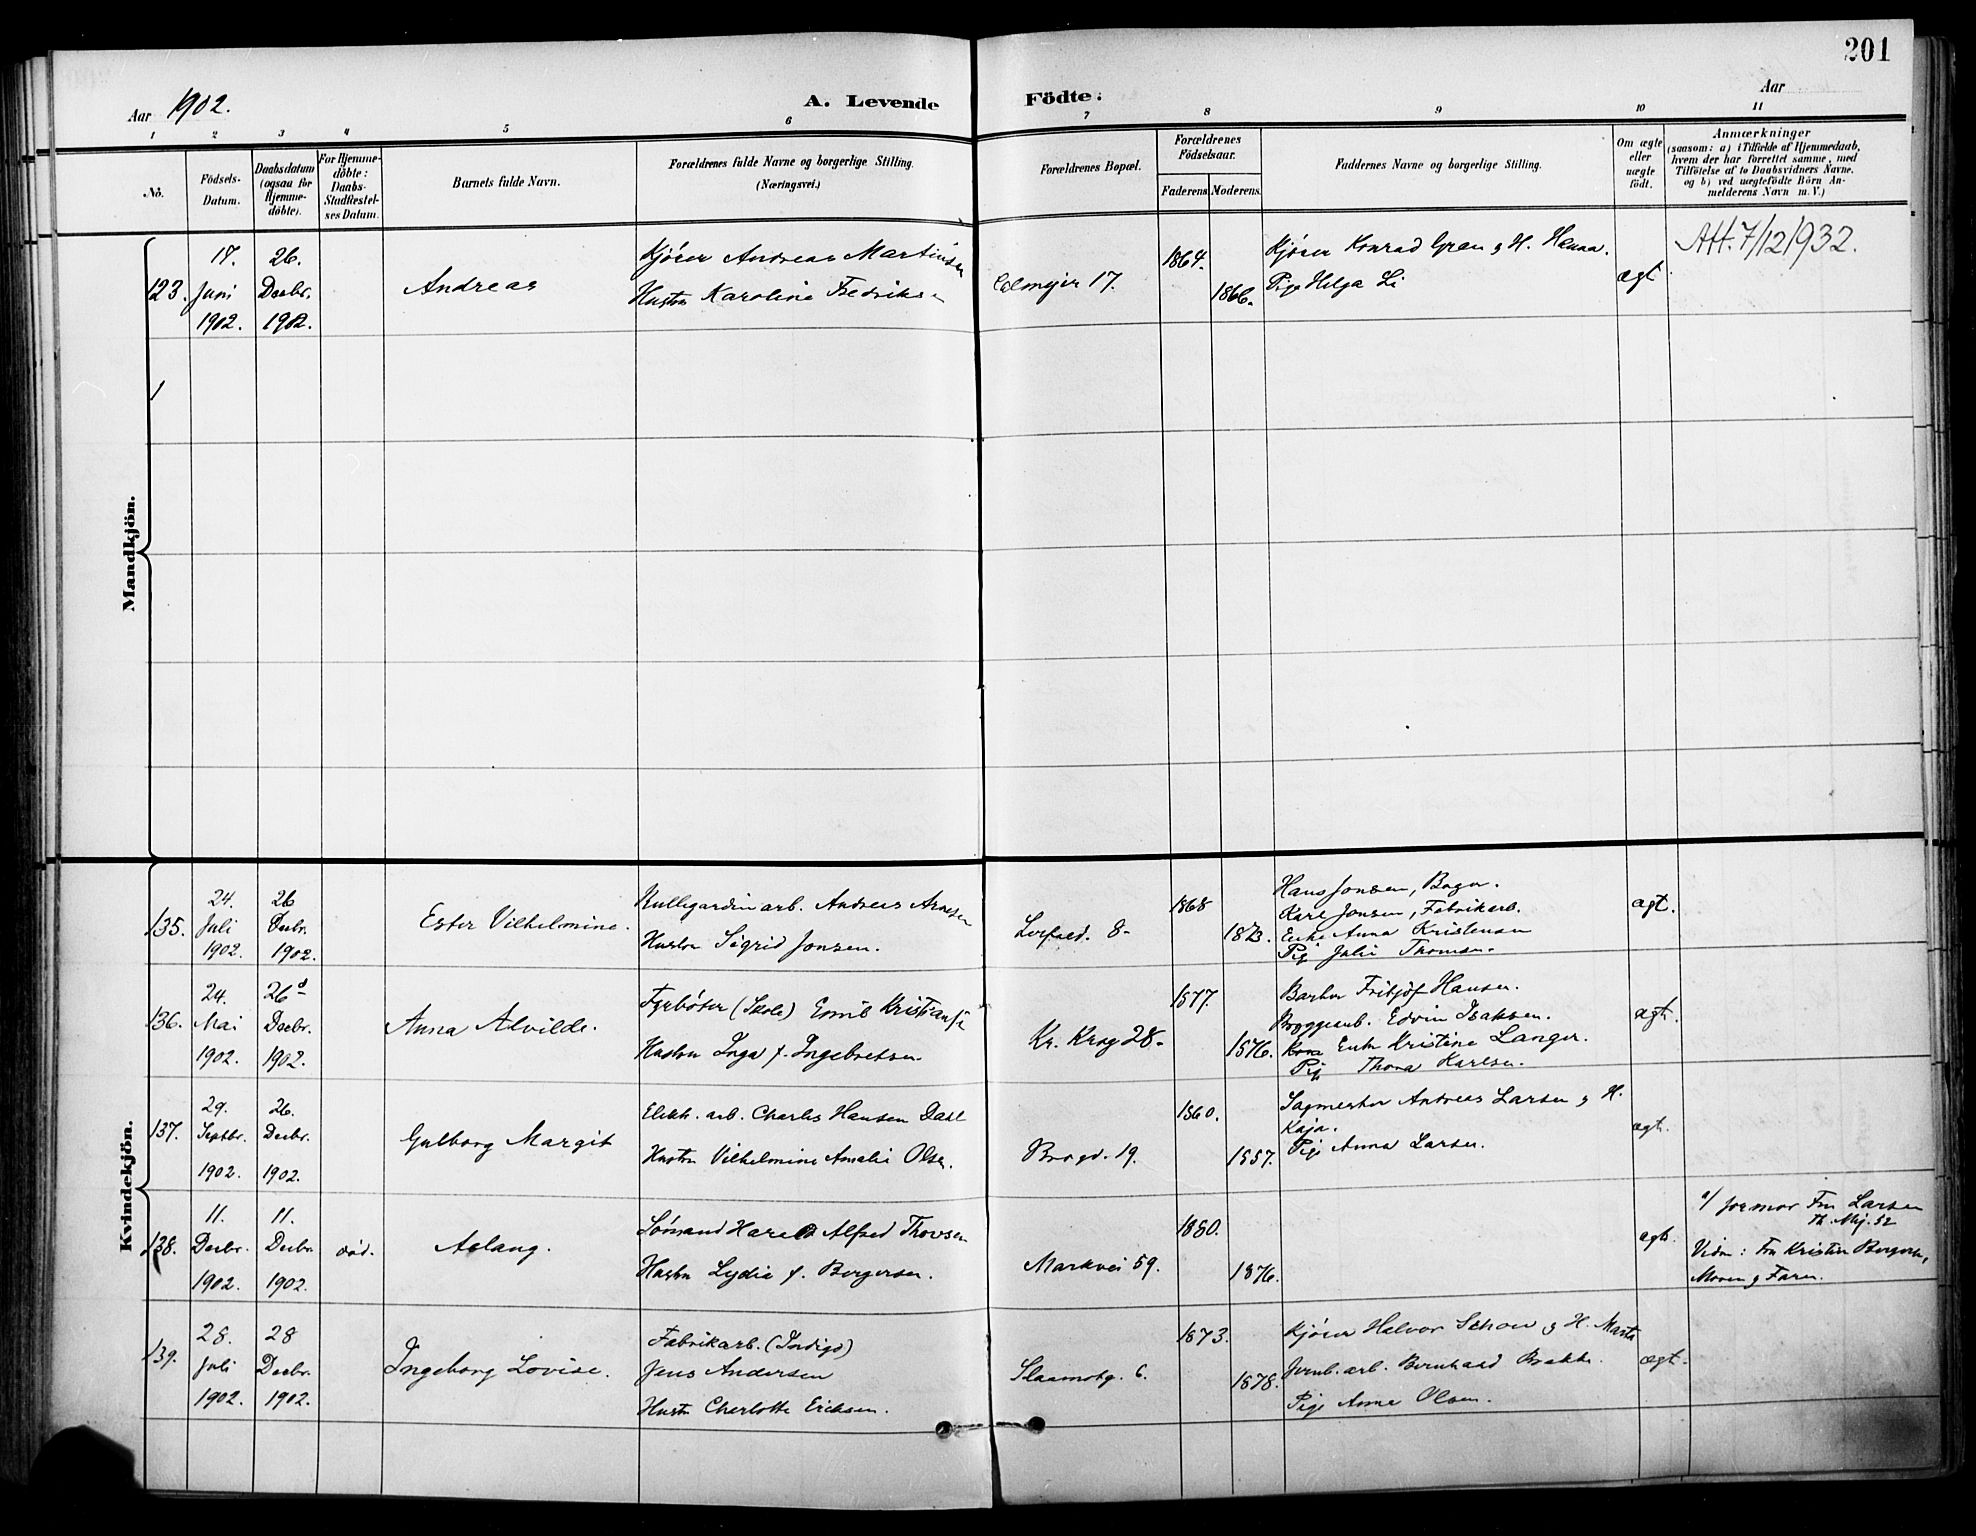 201
Aar 1902.
A. Levende Födte:
Aar
1 2 3 4 5 6 7 8 9 10 11
No.
Födsels-Datum.
Daabsdatum (ogsaa for Hjemme-döbte).
For Hjemme-döbte: Daabs-Stadfæstel-ses Datum.
Barnets fulde Navn.
Forældrenes fulde Navne og borgerlige Stilling. (Næringsvei.)
Forældrenes Bopæl.
Forældrenes Födselsaar.
Faderens. Moderens.
Faddernes Navne og borgerlige Stilling.
Om ægte eller uægte födt.
Anmærkninger
(saasom: a) i Tilfælde af Hjemmedaab,
hvem der har forrettet samme, med
Tilföielse af to Daabsvidners Navne,
og b) ved uægtefödte Börn An-
melderens Navn m. V.)
Mandkjön.
123.
17. Juni 1902.
26. Decbr. 1902.
Andreas
Kjører Andreas Martinsen
Hustru Karoline Fredriks
Calmejer 17.
1864.
1866.
Kjører Konrad Gran & H. Hanna.
Pige Helga Li
ægt
Att. 7/12/1932.
Kvindekjön.
135.
24. Juli 1902.
26 Decbr. 1902.
Ester Vilhelmine.
Rullegardinarb. Andreas Arnesen
Hustru Sigrid Jonsen.
8-
1868
1873.
Hans Jonsen, Bager.
Karl Jonsen, Fabrikarb.
Enke Anna Kristensen
Pig Julie Thomsen.
ægt.
136.
24. Mai 1902.
26d Decbr. 1902.
Anna Alvilde.
Fyrbøter (Skole) Emil Kristians
Hustru Inga f. Ingebretsen
Kr. Krog 28-
1877.
1876.
Barber Fritjof Hansen.
Bryggearb. Edvin Isaksen.
Enke Kristine Langer.
Pig Thora Karlsen.
ægt.
137.
29. Septbr. 1902.
26. Decbr. 1902.
Gulborg Margit
Elekt. arb. Charles Hansen Dahl
Hustru Vilhelmine Amalie Olsen.
Brogd. 19.
1860.
1857.
Sagmester Andreas Larsen & H.
Kaja.
Pige Anna Larsen.
ægt.
138.
11. Decbr. 1902.
11. Decbr 1902.
død.
Aslaug.
Sømand Harald Alfred Thovsen
Hustru Lydia f. Bergersen.
Markvei 59.
1880.
1876.
ægt.
a/ Jormor Fru Larsen
Th. Mej. 52
Vidn: Fru Kristin Bergersen,
Moren & Faren.
139.
28. Juli 1902.
28 Decbr. 1902.
Ingeborg Lovise.
Fabrikarb. (Indigo)
Jens Andersen
Hustr Charlotte Ericksen.
Slaamotg. 6.
1873.
1878.
Kjører Halvor Schou & H. Marta
Jernb. arb. Bernhard Bakke.
Pige Anna Olsen.
ægt.